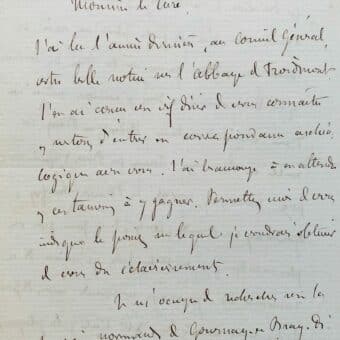 Monsieur le Curé
J'ai lu l'année dernière, au Conseil Général,
votre belle notice sur l'abbaye de Froidmont
J'en ai conçu un vif désir de vous connaître
d'entrer en correspondance archéo
logique avec vous. J'ai beaucoup à en attendre
à y gagner. Permettez moi de vous
indiquer le point sur lequel je voudrais obtenir
de vous des éclaircissements.
Je m'occupe de recherches sur la
normande de Gournay en Bray. Di